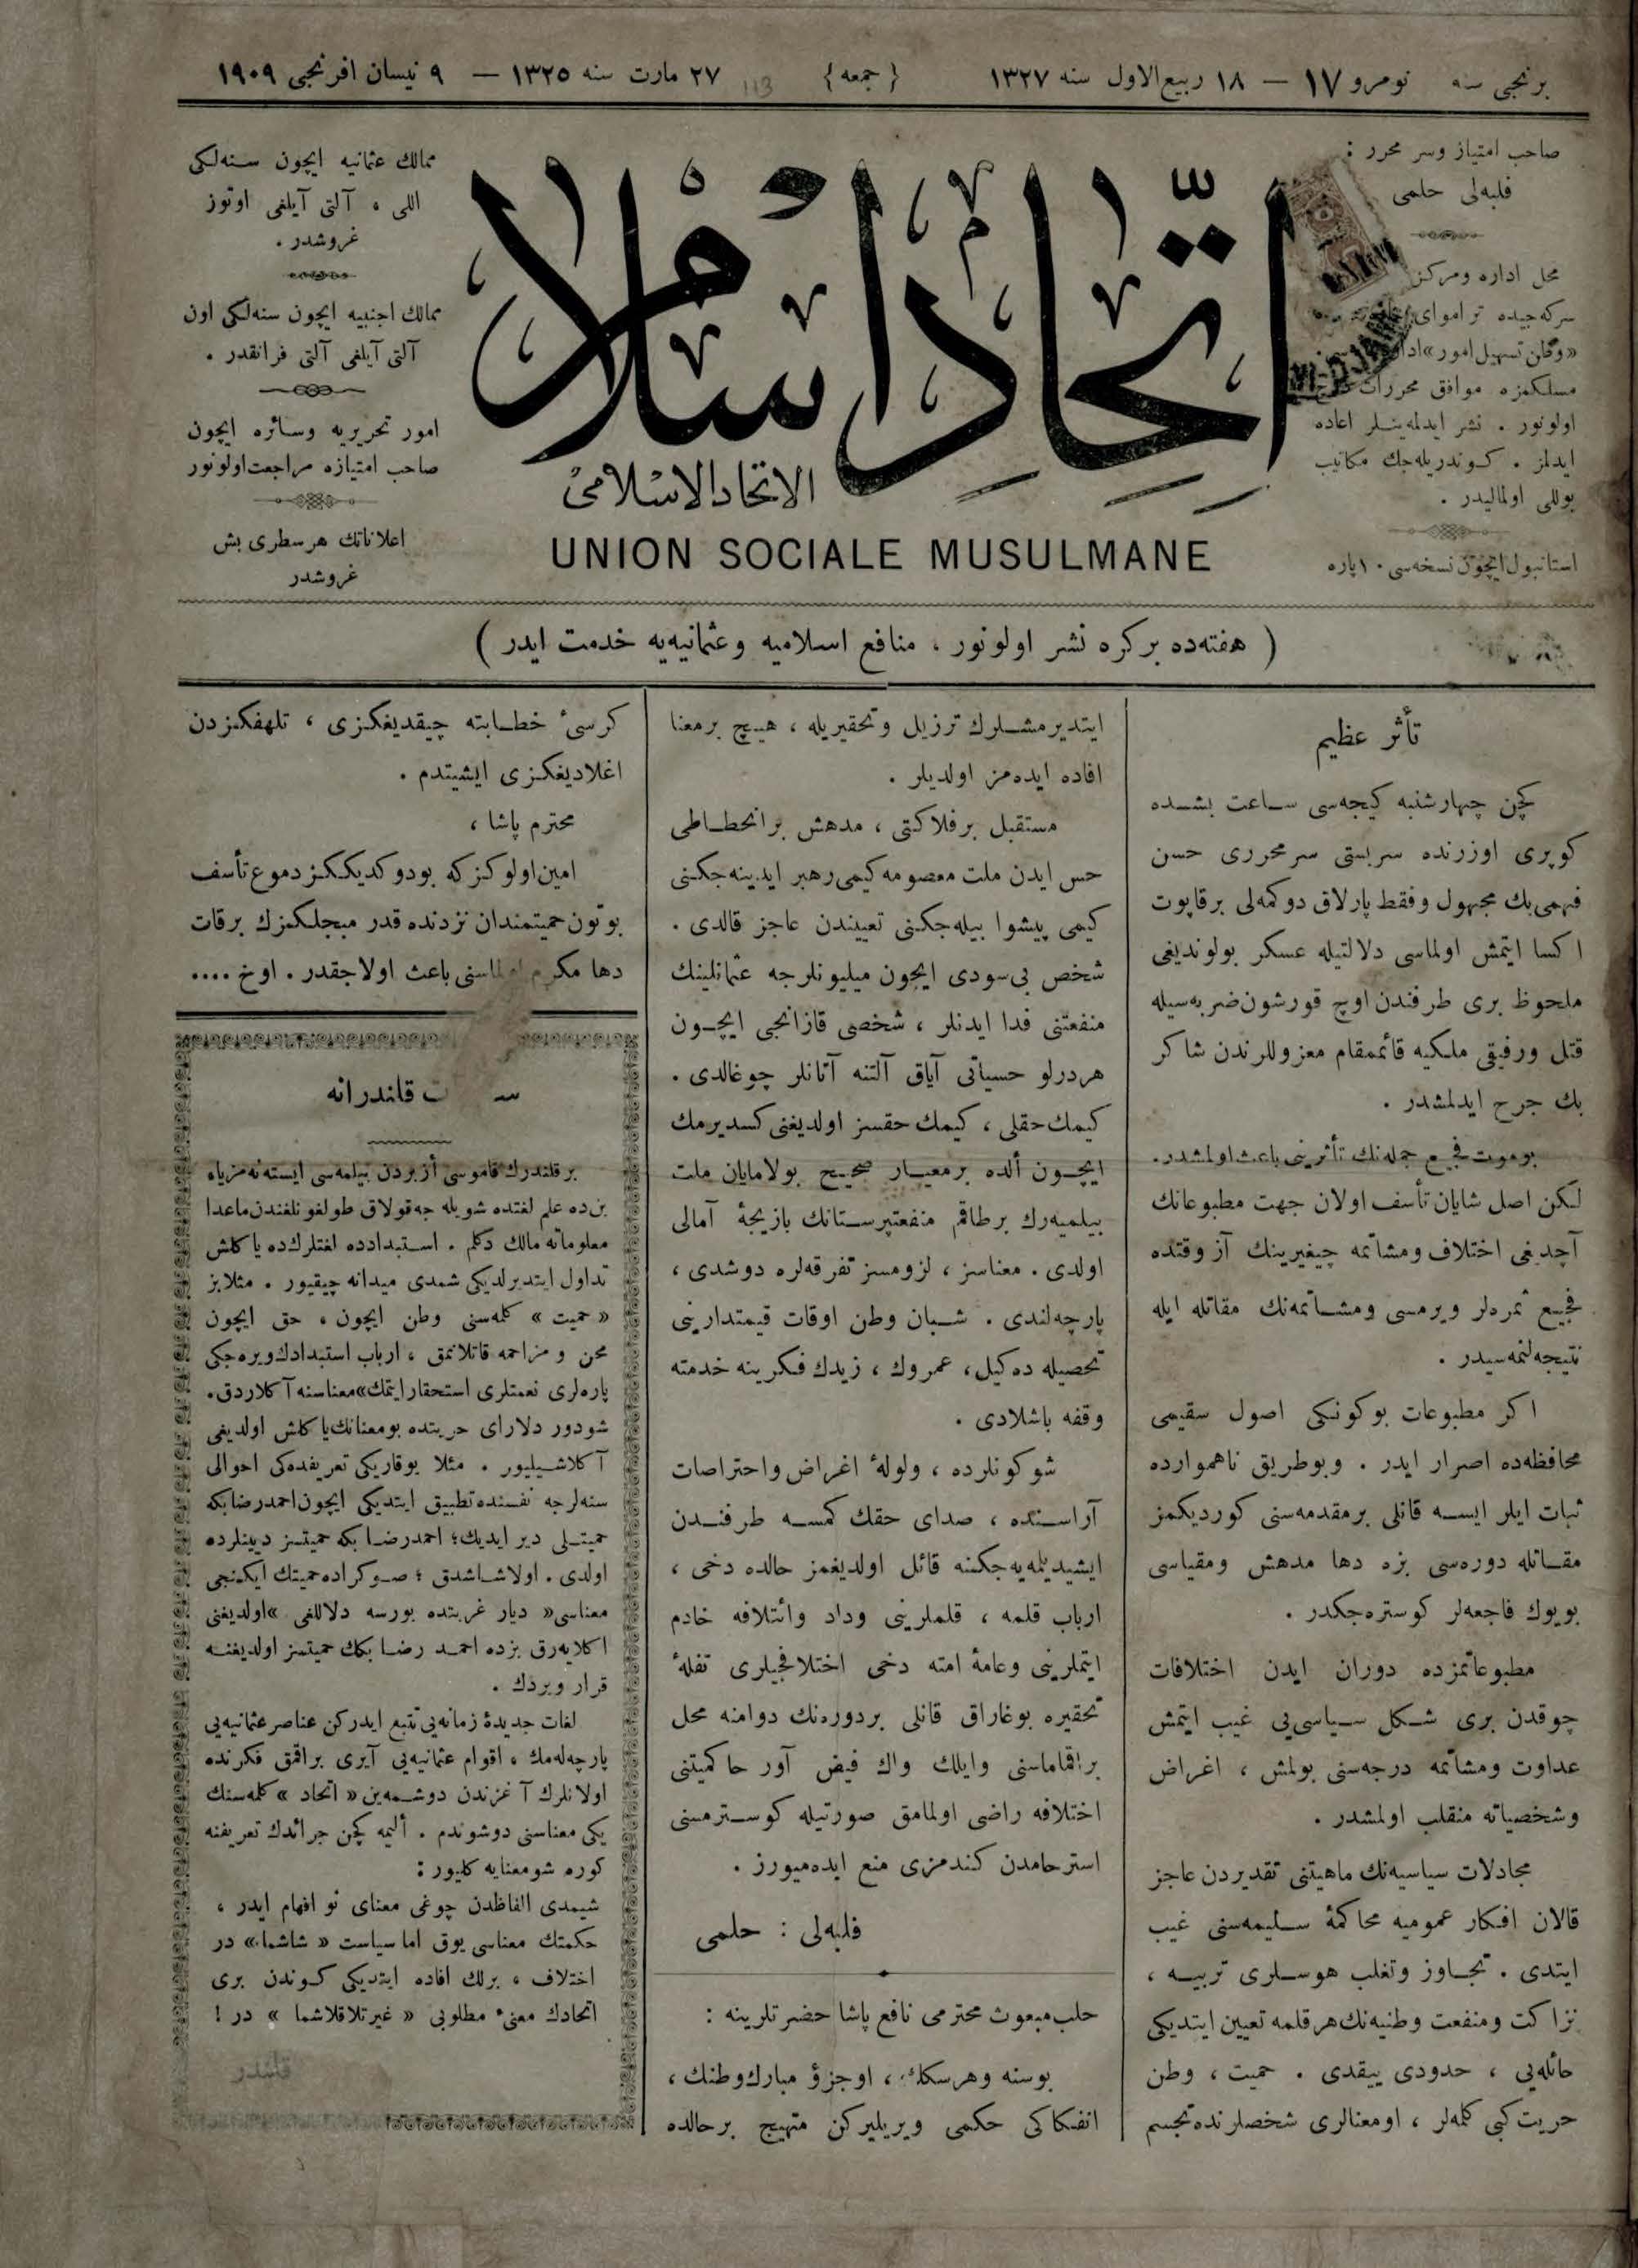 برنجی سنه نومرو ۱۷ — ۱۸ ربیع‌الاول سنه ۱۳۲۷ {جمعه} ۲۷ مارت سنه ۱۳۲۵ — ۹ نیسان افرنجی ۱۹۰۹
صاحب امتیاز وسر محرر :
فلبه‌لی حلمی
محل اداره ومرکز
سرکه‌جیده تراموای
«وطن تسهیل امور»
مسلکمزه موافق محررات درج
اولونور . نشر ایدلمه‌ینلر اعاده
ایدلمز . کوندریله‌جك مکاتیب
پوللی اولمالیدر .
استانبول ایچون نسخه‌سی ۱۰ پاره
اتحاد اسلام
الاتحاد الاسلامی
UNION SOCIALE MUSULMANE
ممالك عثمانیه ایچون سنه‌لکی
اللی ، آلتی آیلغی اوتوز
غروشدر .
ممالك اجنبیه ایچون سنه‌لکی اون
آلتی آیلغی آلتی فرانقدر .
امور تحریریه وسائره ایچون
صاحب امتیازه مراجعت اولونور
اعلاناتك هر سطری بش
غروشدر
( هفته‌ده برکره نشر اولونور ، منافع اسلامیه وعثمانیه‌یه خدمت ایدر )
تأثر عظیم
کچن چهارشنبه کیجه‌سی ساعت بشده
کوپری اوزرنده سربستی سرمحرری حسن
فهمی بك مجهول وفقط پارلاق دوکمه‌لی برقاپوت
اکسا ایتمش اولماسی دلالتیله عسکر بولوندیغی
ملحوظ بری طرفندن اوچ قورشون ضربه‌سیله
قتل ورفیقی ملکیه قائممقام معزوللرندن شاکر
بك جرح ایدلمشدر .
بوموت فجیع جمله‌نك تأثرینی باعث اولمشدر .
لکن اصل شایان تأسف اولان جهت مطبوعاتك
آچدیغی اختلاف ومشاتمه چیغیرینك آز وقتده
فجیع ثمره‌لر ویرمسی ومشاتمه‌نك مقاتله ایله
نتیجه‌لنمه‌سیدر .
اکر مطبوعات بوکونکی اصول سقیمی
محافظه‌ده اصرار ایدر . وبوطریق ناهموارده
ثبات ایلر ایسه قانلی برمقدمه‌سنی کوردیکمز
مقاتله دوره‌سی بزه دها مدهش ومقیاسی
بویوك فاجعه‌لر کوستره‌جکدر .
مطبوعاتمزده دوران ایدن اختلافات
چوقدن بری شکل سیاسی‌یی غیب ایتمش
عداوت ومشاتمه درجه‌سنی بولمش ، اغراض
وشخصیاته منقلب اولمشدر .
مجادلات سیاسیه‌نك ماهیتنی تقدیردن عاجز
قالان افکار عمومیه محاکمهٔ سلیمه‌سنی غیب
ایتدی . تجاوز وتغلب هوسلری تربیه ،
نزاکت ومنفعت وطنیه‌نك هر قلمه تعیین ایتدیکی
حائله‌یی ، حدودی ییقدی . حمیت ، وطن
حریت کبی کلمه‌لر ، اومعنالری شخصلرنده تجسم
ایتدیرمشلرك ترزیل وتحقیریله ، هیچ برمعنا
افاده ایده‌مز اولدیلر .
مستقبل برفلاکتی ، مدهش برانحطاطی
حس ایدن ملت معصومه کیمی رهبر ایدینه‌جکنی
کیمی پیشوا بیله‌جکنی تعییندن عاجز قالدی .
شخص بی‌سودی ایچون میلیونلرجه عثمانلینك
منفعتنی فدا ایدنلر ، شخصی قازانجی ایچون
هردرلو حسیاتی آیاق آلتنه آتانلر چوغالدی .
کیمك حقلی ، کیمك حقسز اولدیغنی کسدیرمك
ایچون ألده برمعیار صحیح بولامایان ملت
بیلمیه‌رك برطاقم منفعتپرستانك بازیچهٔ آمالی
اولدی . معناسز ، لزومسز تفرقه‌لره دوشدی ،
پارچه‌لندی . شبان وطن اوقات قیمتدارینی
تحصیله ده‌کیل ، عمروك ، زیدك فکرینه خدمته
وقفه باشلادی .
شوکونلرده ، ولولهٔ اغراض واحتراصات
آراسنده ، صدای حقك کمسه طرفندن
ایشیدیله‌یه‌جکنه قائل اولدیغمز حالده دخی ،
ارباب قلمه ، قلملرینی وداد وائتلافه خادم
ایتملرینی وعامهٔ امته دخی اختلافجیلری تفلهٔ
تحقیره بوغاراق قانلی بردوره‌نك دوامنه محل
براقماماسنی وایلك واك فیض آور حاکمیتنی
اختلافه راضی اولمامق صورتیله کوسترمسنی
استرحامدن کندمزی منع ایده‌میورز .
فلبه‌لی : حلمی
حلب مبعوث محترمی نافع پاشا حضرتلرینه :
بوسنه وهرسکك ، اوجزؤ مبارك وطنك ،
انفکاکی حکمی ویریلیرکن متهیج برحالده
کرسیٔ خطابته چیقدیغکزی ، تلهفکزدن
اغلادیغکزی ایشیتدم .
محترم پاشا ،
امین اولوکزکه بودوکدیککز دموع تأسف
بوتون حمیتمندان نزدنده قدر مبجلکمزك برقات
دها مکرم اولماسنی باعث اولاجقدر . اوخ ....
قلندرانه
برقلندرك قاموسی أزبردن بیلمه‌سی ایسته‌نه‌مز یاه
بن‌ده علم لغتده شویله جه قولاق طولغونلغندن ماعدا
معلوماته مالك دکلم . استبدادده لغتلرك‌ده یاکلش
تداول ایتدیرلدیکی شمدی میدانه چیقیور . مثلا بز
« حمیت » کلمه‌سنی وطن ایچون ، حق ایچون
محن و مزاحمه قاتلانمق ، ارباب استبدادك ویره‌جکی
پاره‌لری نعمتلری استحقار ایتمك» معناسنه آکلاردق .
شودور دلارای حریتده بومعنانك یاکلش اولدیغی
آکلاشیلیور . مثلا یوقاریکی تعریفده‌کی احوالی
سنه‌لرجه نفسنده تطبیق ایتدیکی ایچون احمدرضا بکه
حمیتلی دیر ایدیك؛ احمدرضا بکه حمیتسز دیینلرده
اولدی . اولاشاشدق ؛ صوکراده حمیتك ایکینجی
معناسی« دیار غربتده بورسه دلاللغی »اولدیغنی
اکلایه‌رق بزده احمد رضا بکك حمیتسز اولدیغنه
قرار ویردك .
لغات جدیدهٔ زمانه‌یی تتبع ایدرکن عناصر عثمانیه‌یی
پارچه‌له‌مك ، اقوام عثمانیه‌یی آیری براقمق فکرنده
اولانلرك آغزندن دوشمه‌ین « اتحاد » کلمه‌سنك
یکی معناسنی دوشوندم . ألیمه کچن جرائدك تعریفنه
کوره شومعنایه کلیور :
شیمدی الفاظدن چوغی معنای نو افهام ایدر ،
حکمتك معناسی یوق اما سیاست « شاشما» در
اختلاف ، برلك افاده ایتدیکی کوندن بری
اتحادك معنیٔ مطلوبی « غیرتلاقلاشما » در !
قلندر